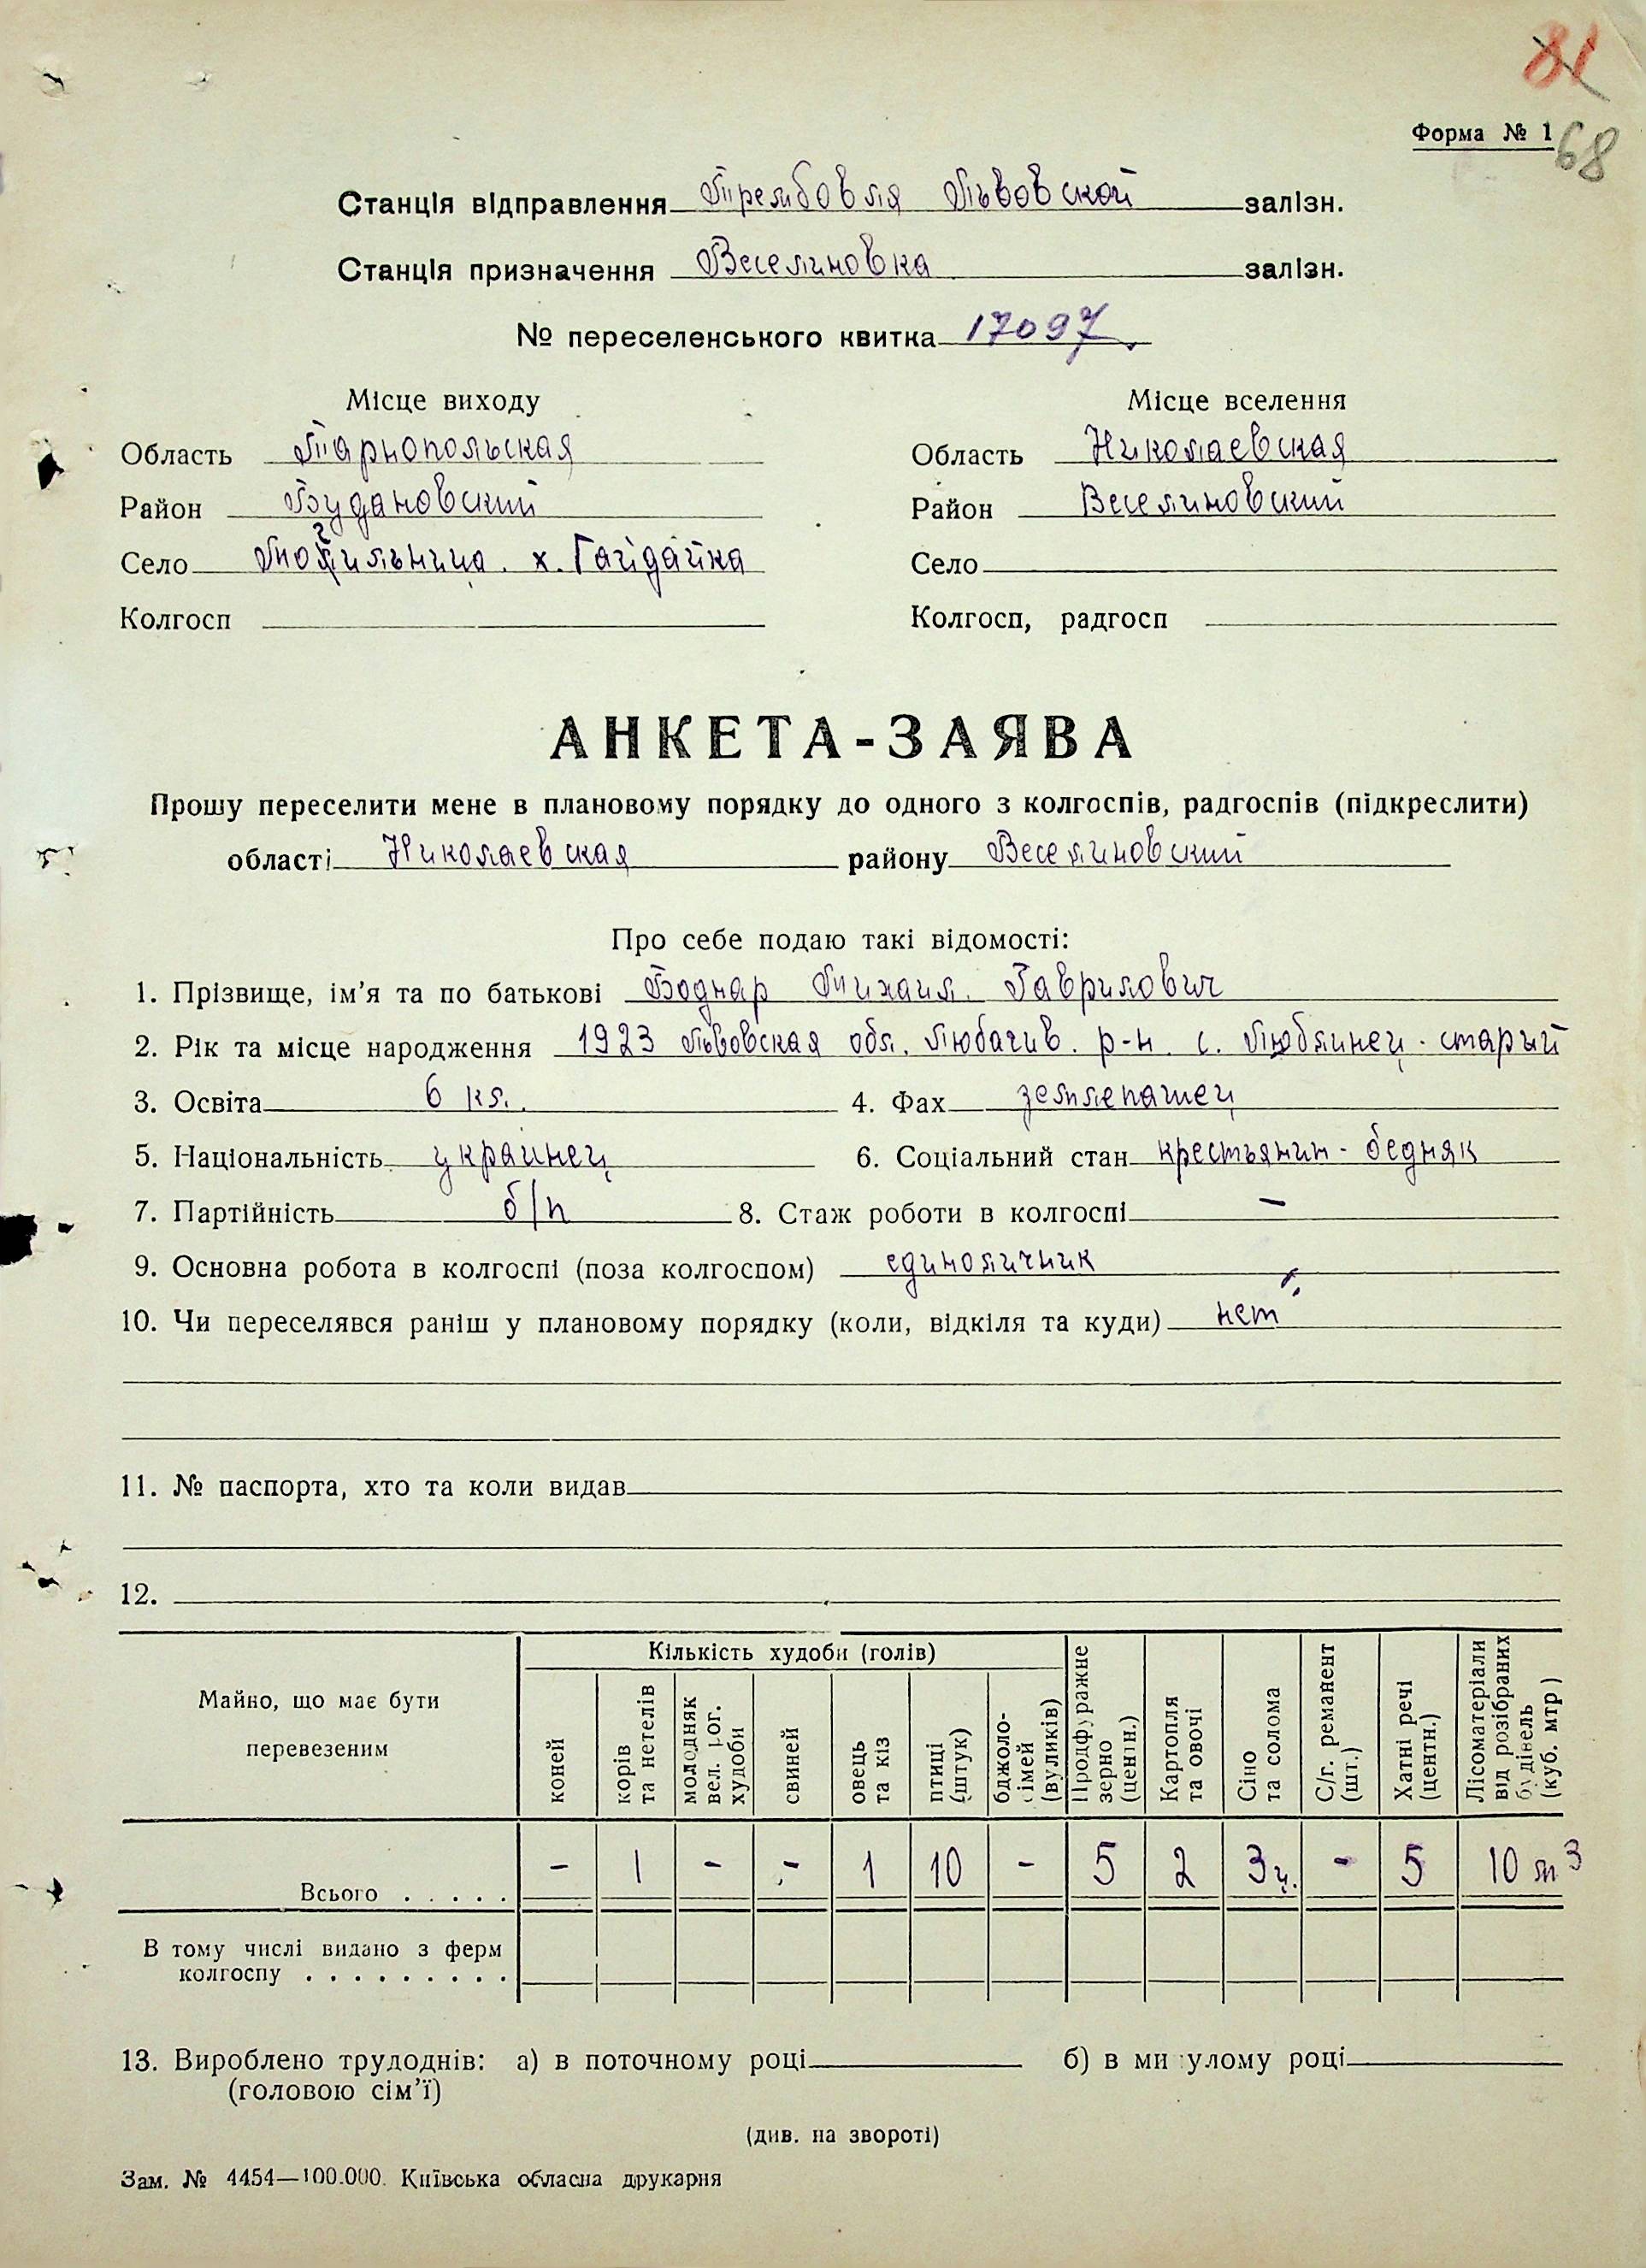 81
Форма № 1
68
Станція відправлення Трембовля Львовской залізн.
Станція призначення Веселиновка залізн.
№ переселенського квитка 17097
Місце виходу
Місце вселення
Область Тарнопольская
Область Николаевская
Район Будановский
Район Веселиновский
Село Могильница х. Гайдайка
Село
Колгосп
Колгосп, радгосп
АНКЕТА-ЗАЯВА
Прошу переселити мене в плановому порядку до одного з колгоспів, радгоспів (підкреслити)
області Николаевская району Веселиновский
Про себе подаю такі відомості:
1. Прізвище, ім'я та по батькові Боднар Михаил Гаврилович
2. Рік та місце народження 1923 Львовская обл. Любачив. р-н. с. Люблинец-старый
3. Освіта 6 кл. 4. Фах землепашец
5. Національність украинец 6. Соціальний стан крестьянин-бедняк
7. Партійність б/п 8. Стаж роботи в колгоспі –
9. Основна робота в колгоспі (поза колгоспом) единоличник
10. Чи переселявся раніш у плановому порядку (коли, відкіля та куди) нет
11. № паспорта, хто та коли видав
12.
Майно, що має бути перевезеним
Кількість худоби (голів)
коней
корів та нетелів
молодняк вел. рог. худоби
свиней
овець та кіз
птиці (штук)
бджоло-сімей (вуликів)
Продфуражне зерно (центн.)
Картопля та овочі
Сіно та солома
С/г. реманент (шт.)
Хатні речі (центн.)
Лісоматеріали від розібраних будівель (куб. мтр)
Всього . . . . . – 1 – – 1 10 – 5 2 3 ц. – 5 10 м3
В тому числі видано з ферм
колгоспу . . . . . . . . .
13. Вироблено трудоднів: а) в поточному році б) в минулому році
(головою сім'ї)
(див. на звороті)
Зам. № 4454—100.000. Київська обласна друкарня